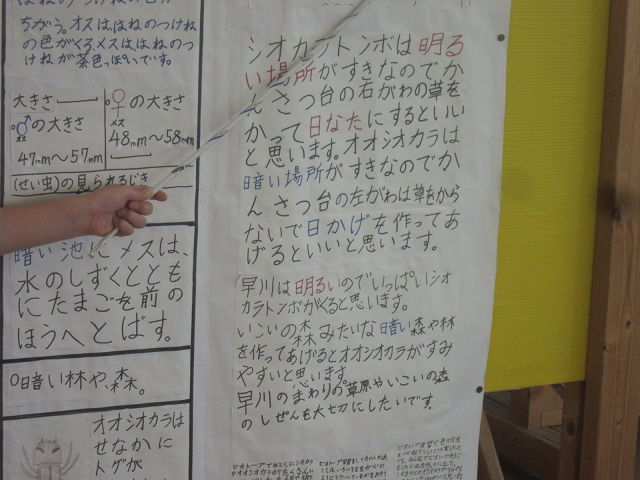 ちがう。オスは、はねのつけね
の色がくろ、メスは、はねのつ
けねが茶色っぽいです。
大きさ
♂の大きさ
オス
47mm〜57mm
♀の大きさ
メス
48mm〜58mm
(せい虫)の見られるじき
暗い池にメスは、
水のしずくととも
にたまごを前の
ほうへとばす。
○暗い林や、森。
オオシオカラは
せなかに
トゲが
シオカラトンボは明る
い場所がすきなのでか
んさつ台の右がわの草を
かって日なたにするといい
と思います。オオシオカラは
暗い場所がすきなのでか
んさつ台の左がわは草をから
ないで日かげを作ってあ
げるといいと思います。
早川は明るいのでいっぱいシオ
カラトンボがくると思います。
いこいの森みたいな暗い森や林
を作ってあげるとオオシオカラがすみ
やすいと思います。
早川のまわりの草原やいこいの森
のしぜんを大切にしたいです。